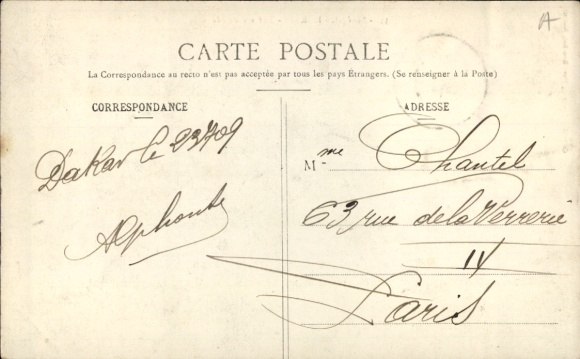 A
CARTE POSTALE
La Correspondance au recto n'est pas acceptée par tous les pays Etrangers. (Se renseigner à la Poste)
CORRESPONDANCE
Dakar le 23709
Alphonse
ADRESSE
Mme Chantel
63 rue de la Verrerie
IV
Paris